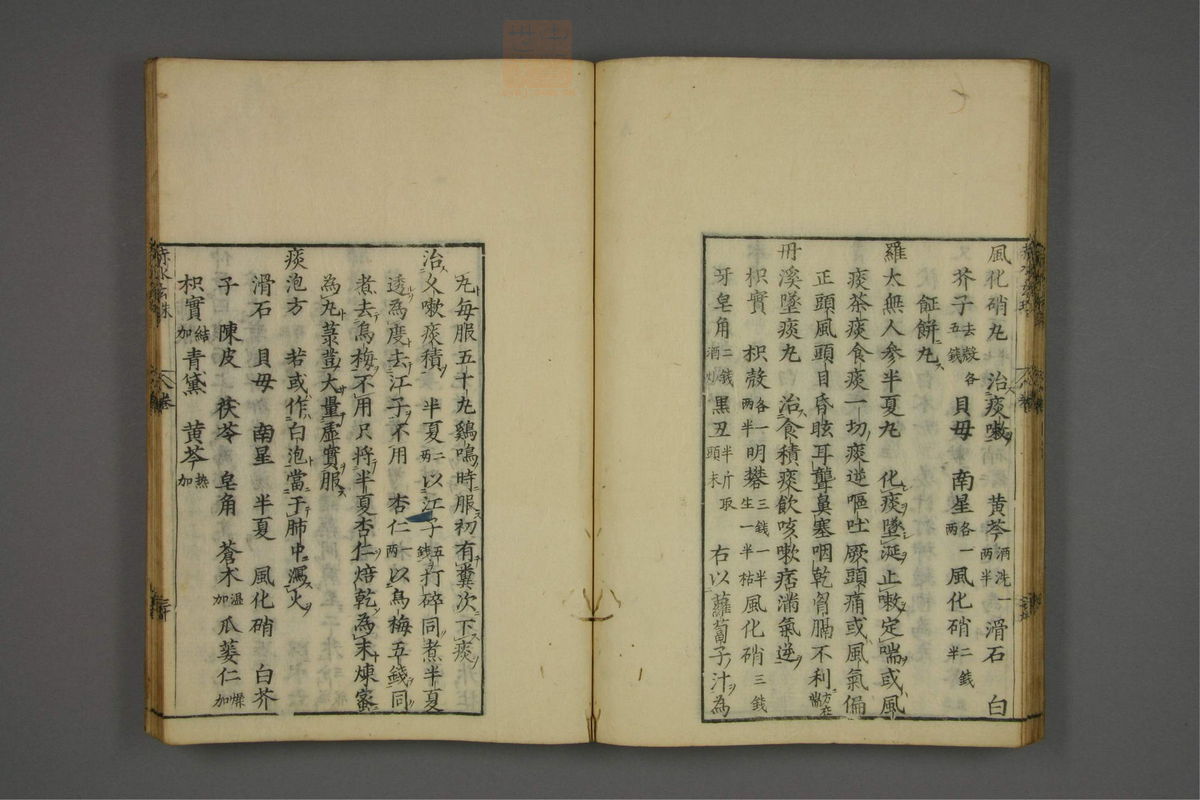 風化硝丸 治痰嗽 黄芩酒洗一両半 滑石 白
芥子去殼各五錢 貝母 南星各一両 風化硝二錢半
飪餅丸
羅太無人參半夏丸 化痰墜涎止嗽定喘或風
痰茶痰食痰一切痰逆嘔吐厥頭痛或風氣偏
正頭風頭目昏眩耳聾鼻塞咽乾胷膈不利方在喘
丹溪墜痰丸 治食積痰飲咳嗽痞滿氣逆
枳實 枳殼各一両半 明礬三錢一半生一半枯 風化硝三錢
牙皂角二錢酒炒 黒丑半斤取頭末 右以蘿蔔子汁為
丸毎服五十丸鷄鳴時服初有糞次下痰
治久嗽痰積 半夏二両 以江子五錢打碎同煮半夏
透為度去江子不用 杏仁一両 以烏梅五錢同
煮去烏梅不用只将半夏杏仁焙乾為末煉蜜
為丸菉豈大量虚實服
痰泡方 若或作白泡當于肺中瀉火
滑石 貝母 南星 半夏 風化硝 白芥
子 陳皮 茯苓 皂角 蒼木濕加 瓜蔞仁燥加
枳實結加 青黛 黄芩熱加
赤水玄珠
八卷